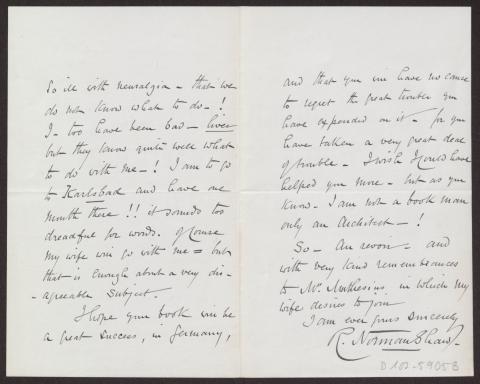 So ill with neuralgia - that we
do not know what to do - !
I - too have been bad - liver
but they know quite well what
to do with me - ! I am to go
to Karlsbad and have one
month there !! it sounds too
dreadful for words. Of course
my wife will go with me = but
that is enough about a very dis-
-agreeable subject.
I hope your book will be
a great success, in Germany,
and that you will have no cause
to regret the great trouble you
have expended on it - for you
have taken a very great deal
of trouble - I wish I could have
helped you more - but as you
know - I am not a book man
only an Architect - !
So - Au revoir - and
with very kind remembrances
to Mrs. Muthesius in which my
wife desires to join
I am ever yours sincerely
R. Norman Shaw.
D 102-59053